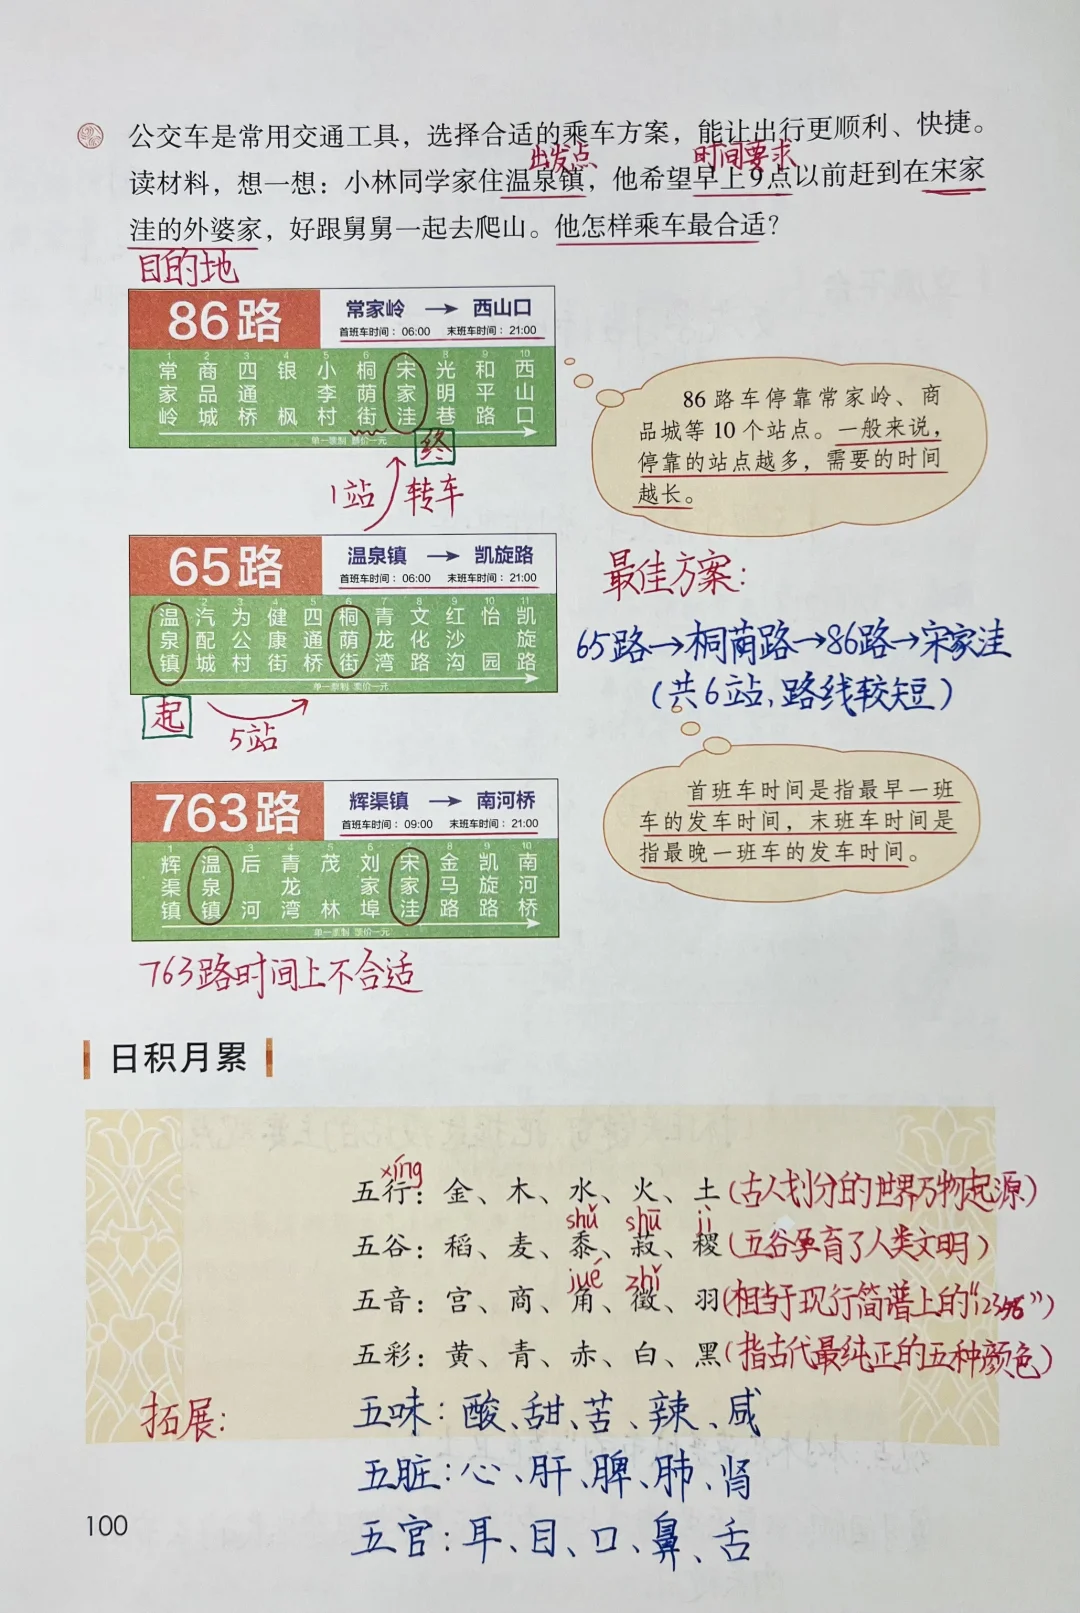 公交车是常用交通工具，选择合适的乘车方案，能让出行更顺利、快捷。
出发点 时间要求
读材料，想一想：小林同学家住温泉镇，他希望早上9点以前赶到在宋家
洼的外婆家，好跟舅舅一起去爬山。他怎样乘车最合适？
目的地
86路 常家岭 → 西山口
首班车时间：06:00 末班车时间：21:00
1 2 3 4 5 6 7 8 9 10
常家岭 商品城 四通桥 银枫 小李村 桐荫街 宋家洼 光明巷 和平路 西山口
单一票制 票价一元
终
86路车停靠常家岭、商
品城等10个站点。一般来说，
停靠的站点越多，需要的时间
越长。
1站 转车
65路 温泉镇 → 凯旋路
首班车时间：06:00 末班车时间：21:00
1 2 3 4 5 6 7 8 9 10 11
温泉镇 汽配城 为公村 健康街 四通桥 桐荫街 青龙湾 文化路 红沙沟 怡园 凯旋路
单一票制 票价一元
起
5站
最佳方案：
65路→桐荫路→86路→宋家洼
（共6站，路线较短）
763路 辉渠镇 → 南河桥
首班车时间：09:00 末班车时间：21:00
1 2 3 4 5 6 7 8 9 10
辉渠镇 温泉镇 后河 青龙湾 茂林 刘家埠 宋家洼 金马路 凯旋路 南河桥
单一票制 票价一元
首班车时间是指最早一班
车的发车时间，末班车时间是
指最晚一班车的发车时间。
763路时间上不合适
日积月累
xíng
五行：金、木、水、火、土（古人划分的世界万物起源）
shǔ shū jì
五谷：稻、麦、黍、菽、稷（五谷孕育了人类文明）
jué zhǐ
五音：宫、商、角、徵、羽（相当于现行简谱上的“12356”）
五彩：黄、青、赤、白、黑（指古代最纯正的五种颜色）
拓展：
五味：酸、甜、苦、辣、咸
五脏：心、肝、脾、肺、肾
五官：耳、目、口、鼻、舌
100